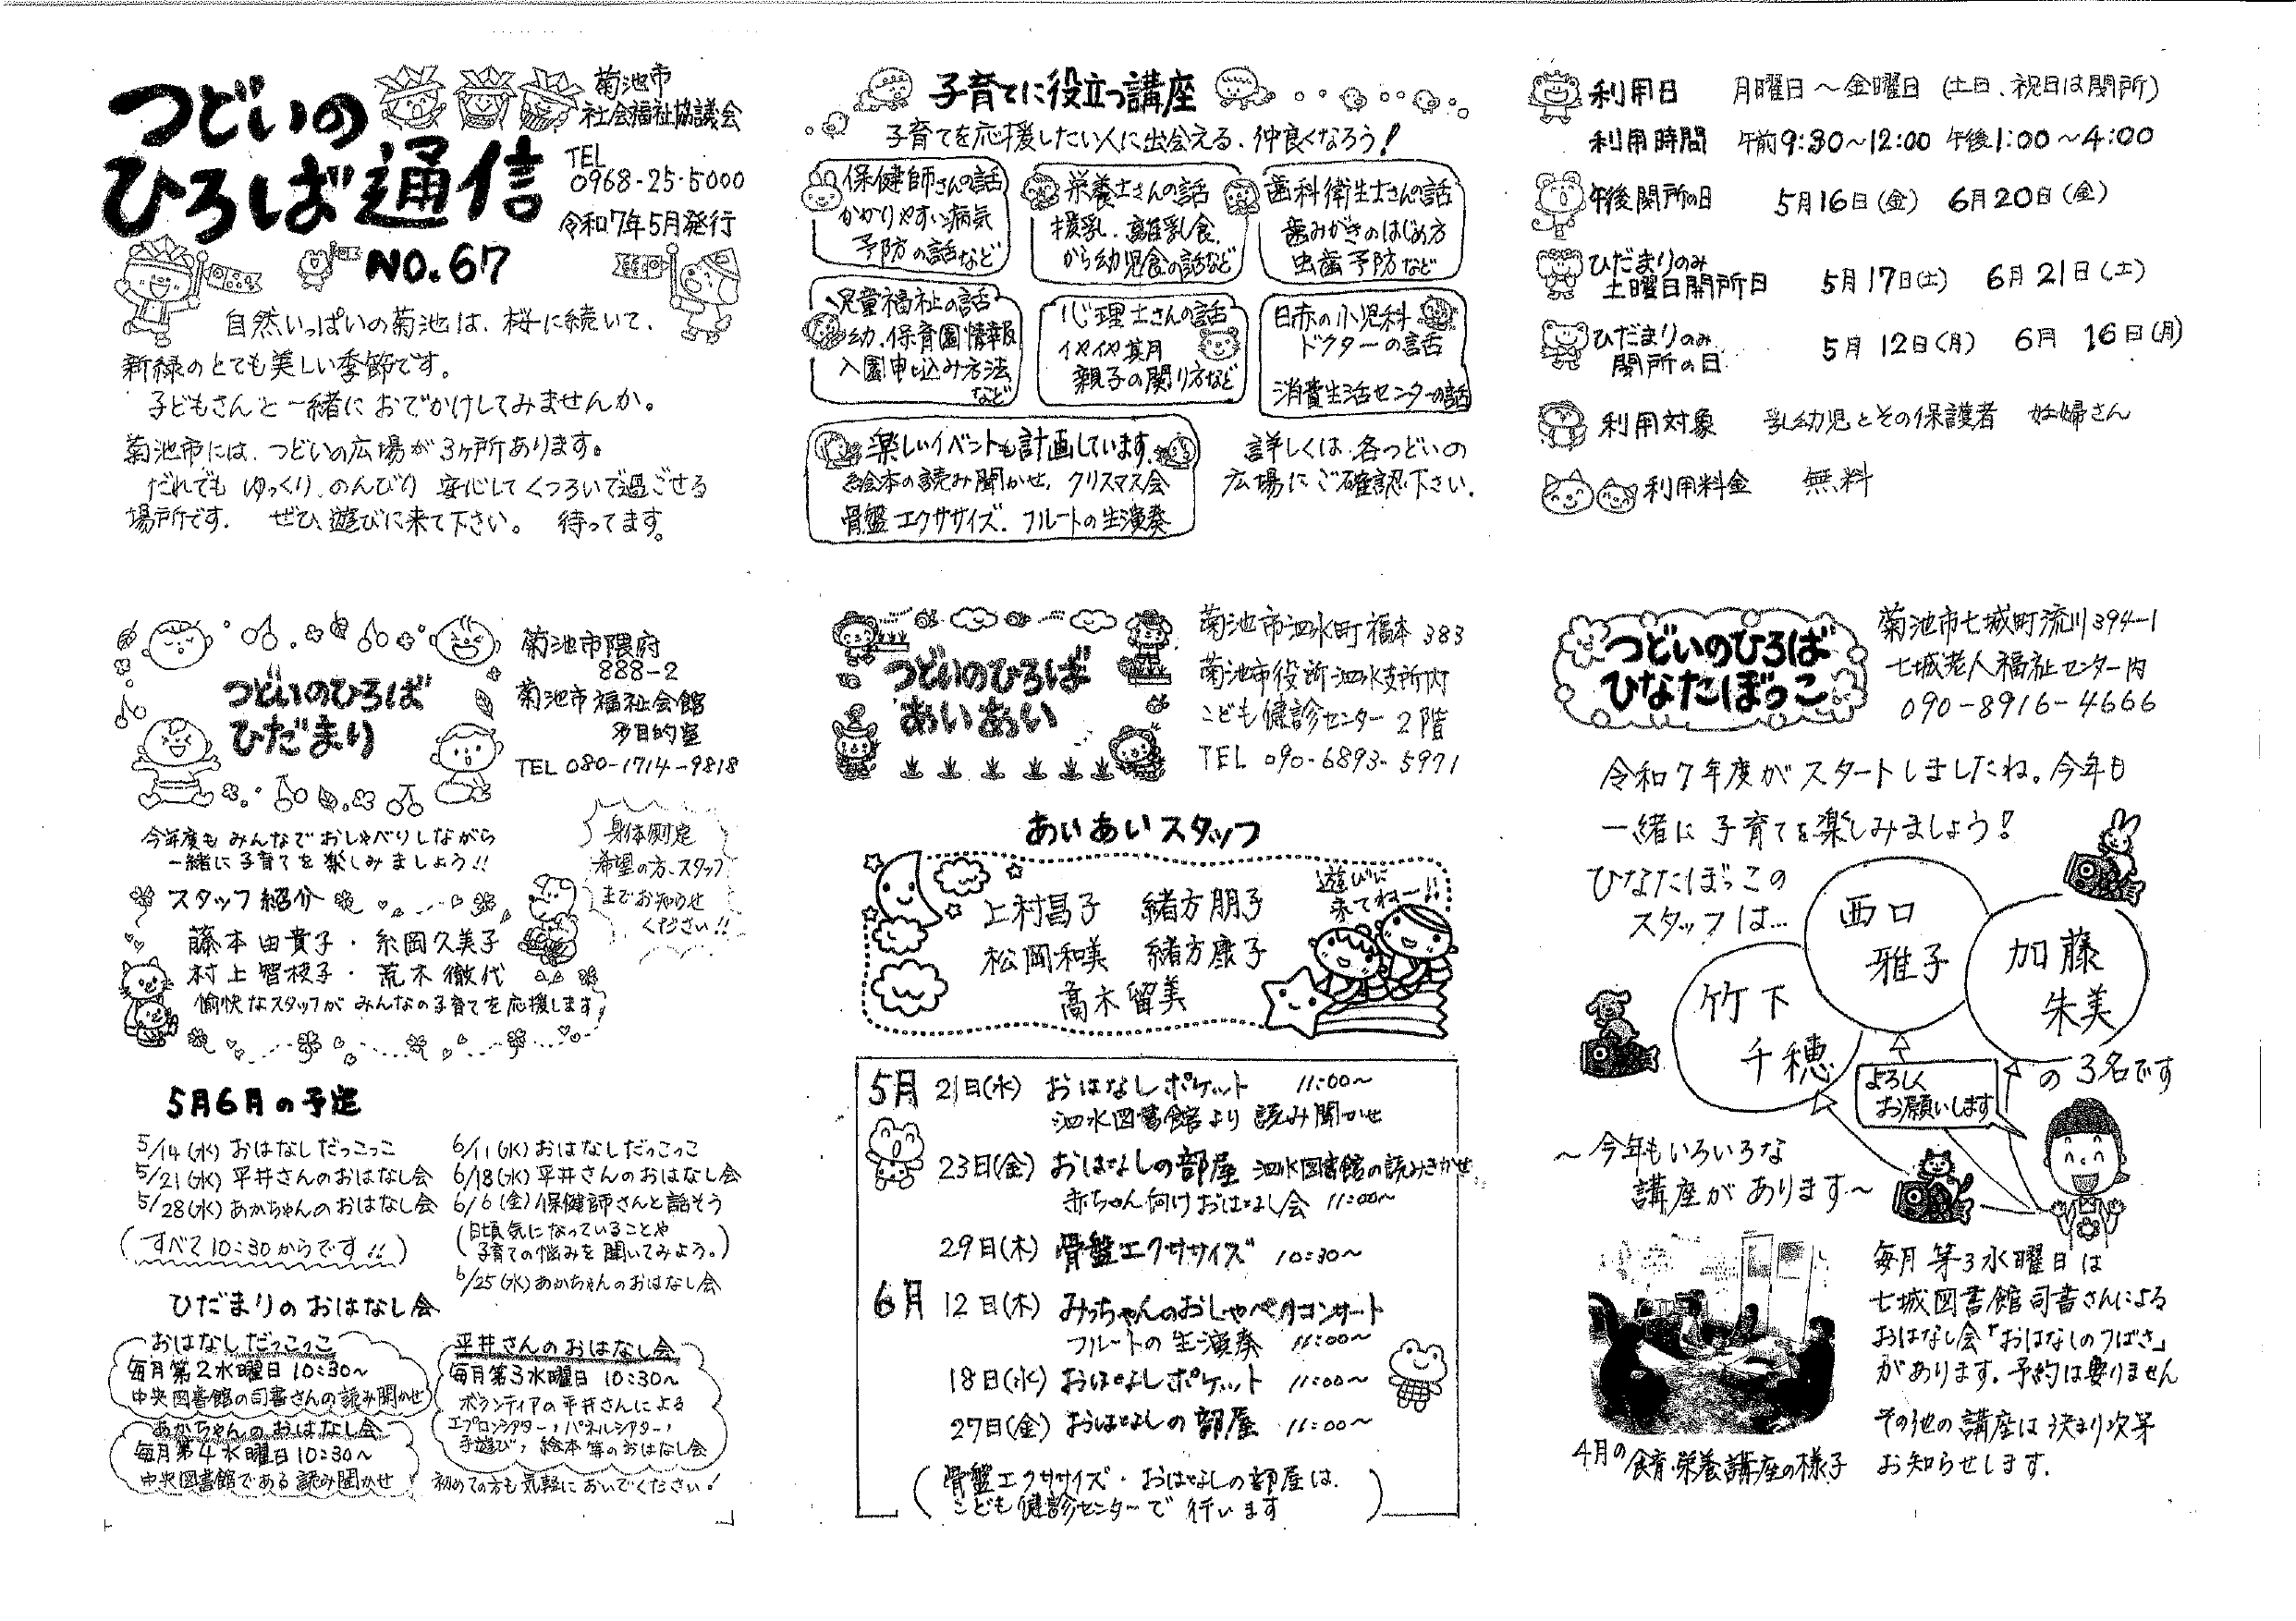 つどいの
ひろば通信
NO.67
菊池市
社会福祉協議会
TEL
0968-25-5000
令和7年5月発行
自然いっぱいの菊池は、桜に続いて、
新緑のとても美しい季節です。
子どもさんと一緒におでかけしてみませんか。
菊池市には、つどいの広場が3ヶ所あります。
だれでも ゆっくり、のんびり 安心してくつろいで過ごせる
場所です。 ぜひ、遊びに来て下さい。 待ってます。
子育てに役立つ講座
子育てを応援したい人に出会える、仲良くなろう!
保健師さんの話
かかりやすい病気
予防の話など
栄養士さんの話
授乳、離乳食、
から幼児食の話など
歯科衛生士さんの話
歯みがきのはじめ方
虫歯予防など
児童福祉の話
幼、保育園情報
入園申し込み方法
など
心理士さんの話
イヤイヤ期
親子の関り方など
日赤の小児科
ドクターの話
消費生活センターの話
楽しいイベントも計画しています。
絵本の読み聞かせ、クリスマス会
骨盤エクササイズ、フルートの生演奏
詳しくは、各つどいの
広場にご確認下さい。
利用日 月曜日～金曜日 (土日、祝日は閉所)
利用時間 午前9:30～12:00 午後1:00～4:00
午後閉所の日 5月16日(金) 6月20日(金)
ひだまりのみ
土曜日開所日 5月17日(土) 6月21日(土)
ひだまりのみ
閉所の日 5月12日(月) 6月16日(月)
利用対象 乳幼児とその保護者 妊婦さん
利用料金 無料
つどいのひろば
ひだまり
菊池市隈府
888-2
菊池市福祉会館
多目的室
TEL 080-1714-9818
今年度も みんなで おしゃべりしながら
一緒に子育てを楽しみましょう!!
身体測定
希望の方、スタッフ
までお知らせ
ください!!
スタッフ紹介
藤本由貴子・糸岡久美子
村上智枝子・荒木徹代
愉快なスタッフが みんなの子育てを応援します
5月6月の予定
5/14(水) おはなしだっこっこ
5/21(水) 平井さんのおはなし会
5/28(水) あかちゃんのおはなし会
(すべて10:30からです!!)
6/11(水) おはなしだっこっこ
6/18(水) 平井さんのおはなし会
6/6(金) 保健師さんと話そう
(日頃気になっていることや
子育ての悩みを聞いてみよう。)
6/25(水) あかちゃんのおはなし会
ひだまりのおはなし会
おはなしだっこっこ
毎月第2水曜日10:30～
中央図書館の司書さんの読み聞かせ
あかちゃんのおはなし会
毎月第4水曜日10:30～
中央図書館である読み聞かせ
平井さんのおはなし会
毎月第3水曜日 10:30～
ボランティアの平井さんによる
エプロンシアター、パネルシアター、
手遊び、絵本等のおはなし会
初めての方も気軽においでください!
つどいのひろば
あいあい
菊池市泗水町福本383
菊池市役所泗水支所内
こども健診センター2階
TEL 090-6893-5971
あいあいスタッフ
上村昌子 緒方朋子
松岡和美 緒方康子
高木留美
遊びに
来てねー!!
5月 21日(水) おはなしポケット 11:00～
泗水図書館より読み聞かせ
23日(金) おはなしの部屋 泗水図書館の読みきかせ
赤ちゃん向けおはなし会 11:00～
29日(木) 骨盤エクササイズ 10:30～
6月 12日(木) みっちゃんのおしゃべりコンサート
フルートの生演奏 11:00～
18日(水) おはなしポケット 11:00～
27日(金) おはなしの部屋 11:00～
(骨盤エクササイズ・おはなしの部屋は、
こども健診センターで行います)
つどいのひろば
ひなたぼっこ
菊池市七城町流川394-1
七城老人福祉センター内
090-8916-4666
令和7年度がスタートしましたね。今年も
一緒に子育てを楽しみましょう!
ひなたぼっこの
スタッフは…
西口
雅子
加藤
朱美
竹下
千穂
の3名です
よろしく
お願いします
～今年もいろいろな
講座があります～
毎月第3水曜日は
七城図書館司書さんによる
おはなし会「おはなしのつばさ」
があります。予約は要りません
その他の講座は決まり次第
お知らせします。
4月の食育・栄養講座の様子